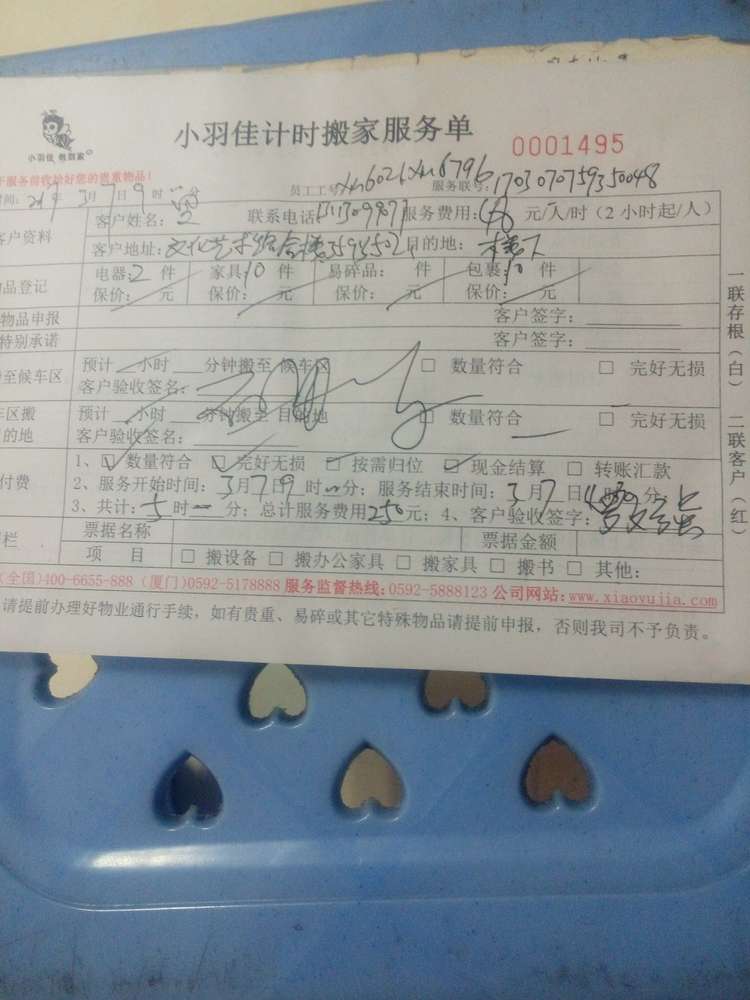 小羽佳计时搬家服务单
0001495
小羽佳 包到家
服务前收拾好您的贵重物品!
时间: 年 3月7日9时 分 员工工号: xm6021xm6796 服务联号: 170307075935 0048
客户资料 客户姓名: 联系电话: 服务费用: 元/人/时(2小时起/人)
客户地址:文化艺术综合楼 目的地: 楼下
品登记 电器:2件 家具10件 易碎品: 件 包裹:10件
保价: 元 保价: 元 保价: 元 保价: 元
物品申报 客户签字:
特别承诺 客户签字:
至候车区 预计 小时 分钟搬至 候车区 □ 数量符合 □ 完好无损
客户验收签名:
车区搬 预计 小时 分钟搬至 目的地 □ 数量符合 □ 完好无损
的地 客户验收签名:
付费 1、☑ 数量符合 ☑ 完好无损 □ 按需归位 ☑ 现金结算 □ 转账汇款
2、服务开始时间: 3月7日9时 分; 服务结束时间: 3月7日 分
3、共计: 5时 分; 总计服务费用250元; 4、客户验收签字:
栏 票据名称 票据金额
项 目 □ 搬设备 □ 搬办公家具 □ 搬家具 □ 搬书 □ 其他:
(全国)400-6655-888 (厦门)0592-5178888 服务监督热线:0592-5888123 公司网站:www.xiaoyujia.com
请提前办理好物业通行手续,如有贵重、易碎或其它特殊物品请提前申报,否则我司不予负责。
一联存根(白) 二联客户(红)